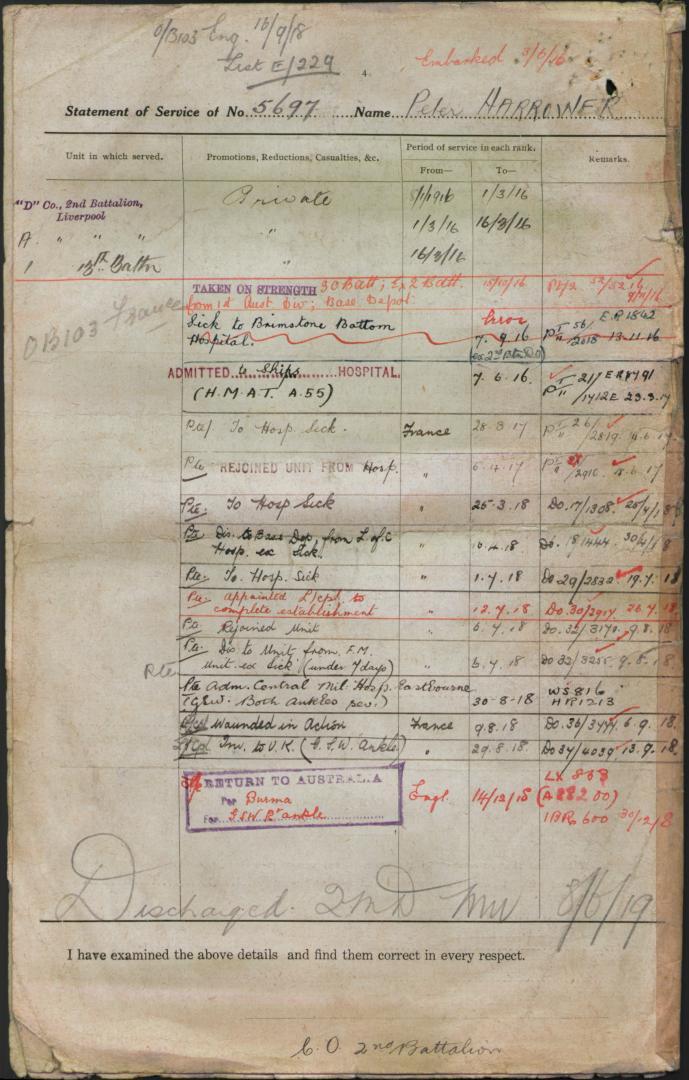 O/B103 Eng. 16/9/18
List E/229
4.
Embarked 3/6/16
Statement of Service of No. 5697 Name Peter HARROWER
Unit in which served. Promotions, Reductions, Casualties, &c. Period of service in each rank. From— To— Remarks.
"D" Co., 2nd Battalion, Liverpool Private 5/1/1916 1/3/16
A. " " " " 1/3/16 16/3/16
1 13th Battn 16/3/16
TAKEN ON STRENGTH 30 Batt; Ex 2 Batt. 15/10/16
from 1st Aust Div; Base Depot
OB103 France
Sick to Brimstone Bottom Hospital. Error 7.9.16 E.R 1862
13.11.16
ADMITTED to Ships HOSPITAL. 7.6.16. 217 ER 8791
(H.M.A.T. A.55) 1712E 23.3.17
To Hosp Sick. France 28.3.17 26/2819 4.6.17
Pte REJOINED UNIT FROM Hosp. " 6.4.17 2910 4.6.17
Pte. To Hosp Sick " 25.3.18 Do. 17/1308 25/4/18
Pte Dis. to Base Dep. from L of C " 10.4.18 Do. 18/1444 30/4/18
Hosp. ex Sick.
Pte. To. Hosp. Sick " 1.7.18 Do 29/2832 19.7.18
Pte. appointed L/cpl. to " 12.7.18 Do. 30/2917 26.7.18
complete establishment
Pte. Rejoined Unit " 6.7.18 Do. 32/3170 9.8.18
Pte. Dis to Unit from F.M.
Unit ex Sick (under 7 days) " 6.7.18 Do 32/3255 9.8.18
Pte
Pte Adm. Central Mil. Hosp. Eastbourne WS 816
(GSW. Both Ankles sev.) 30-8-18 HR1213
L/Cpl Wounded in Action France 9.8.18 Do. 36/3777 6.9.18
L/Cpl Inv. to U.K. (G.S.W. Ankle) " 29.8.18 Do 37/4039 13.9.18
RETURN TO AUSTRALIA Engl. 14/12/18 LX 858
Per Burma (A 28200)
For G.S.W. Rt ankle 1BR 600 30/12/8
Discharged. 2MD MU 8/6/19
I have examined the above details and find them correct in every respect.
C.O. 2nd Battalion